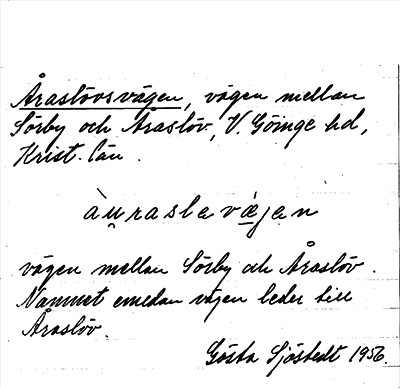 Åraslövsvägen, vägen mellan
Sörby och Åraslöv, V. Göinge hd,
Krist. län.
àu̯raslavǽgen
vägen mellan Sörby och Åraslöv.
Namnet emedan vägen leder till
Åraslöv.
Gösta Sjöstedt 1956.